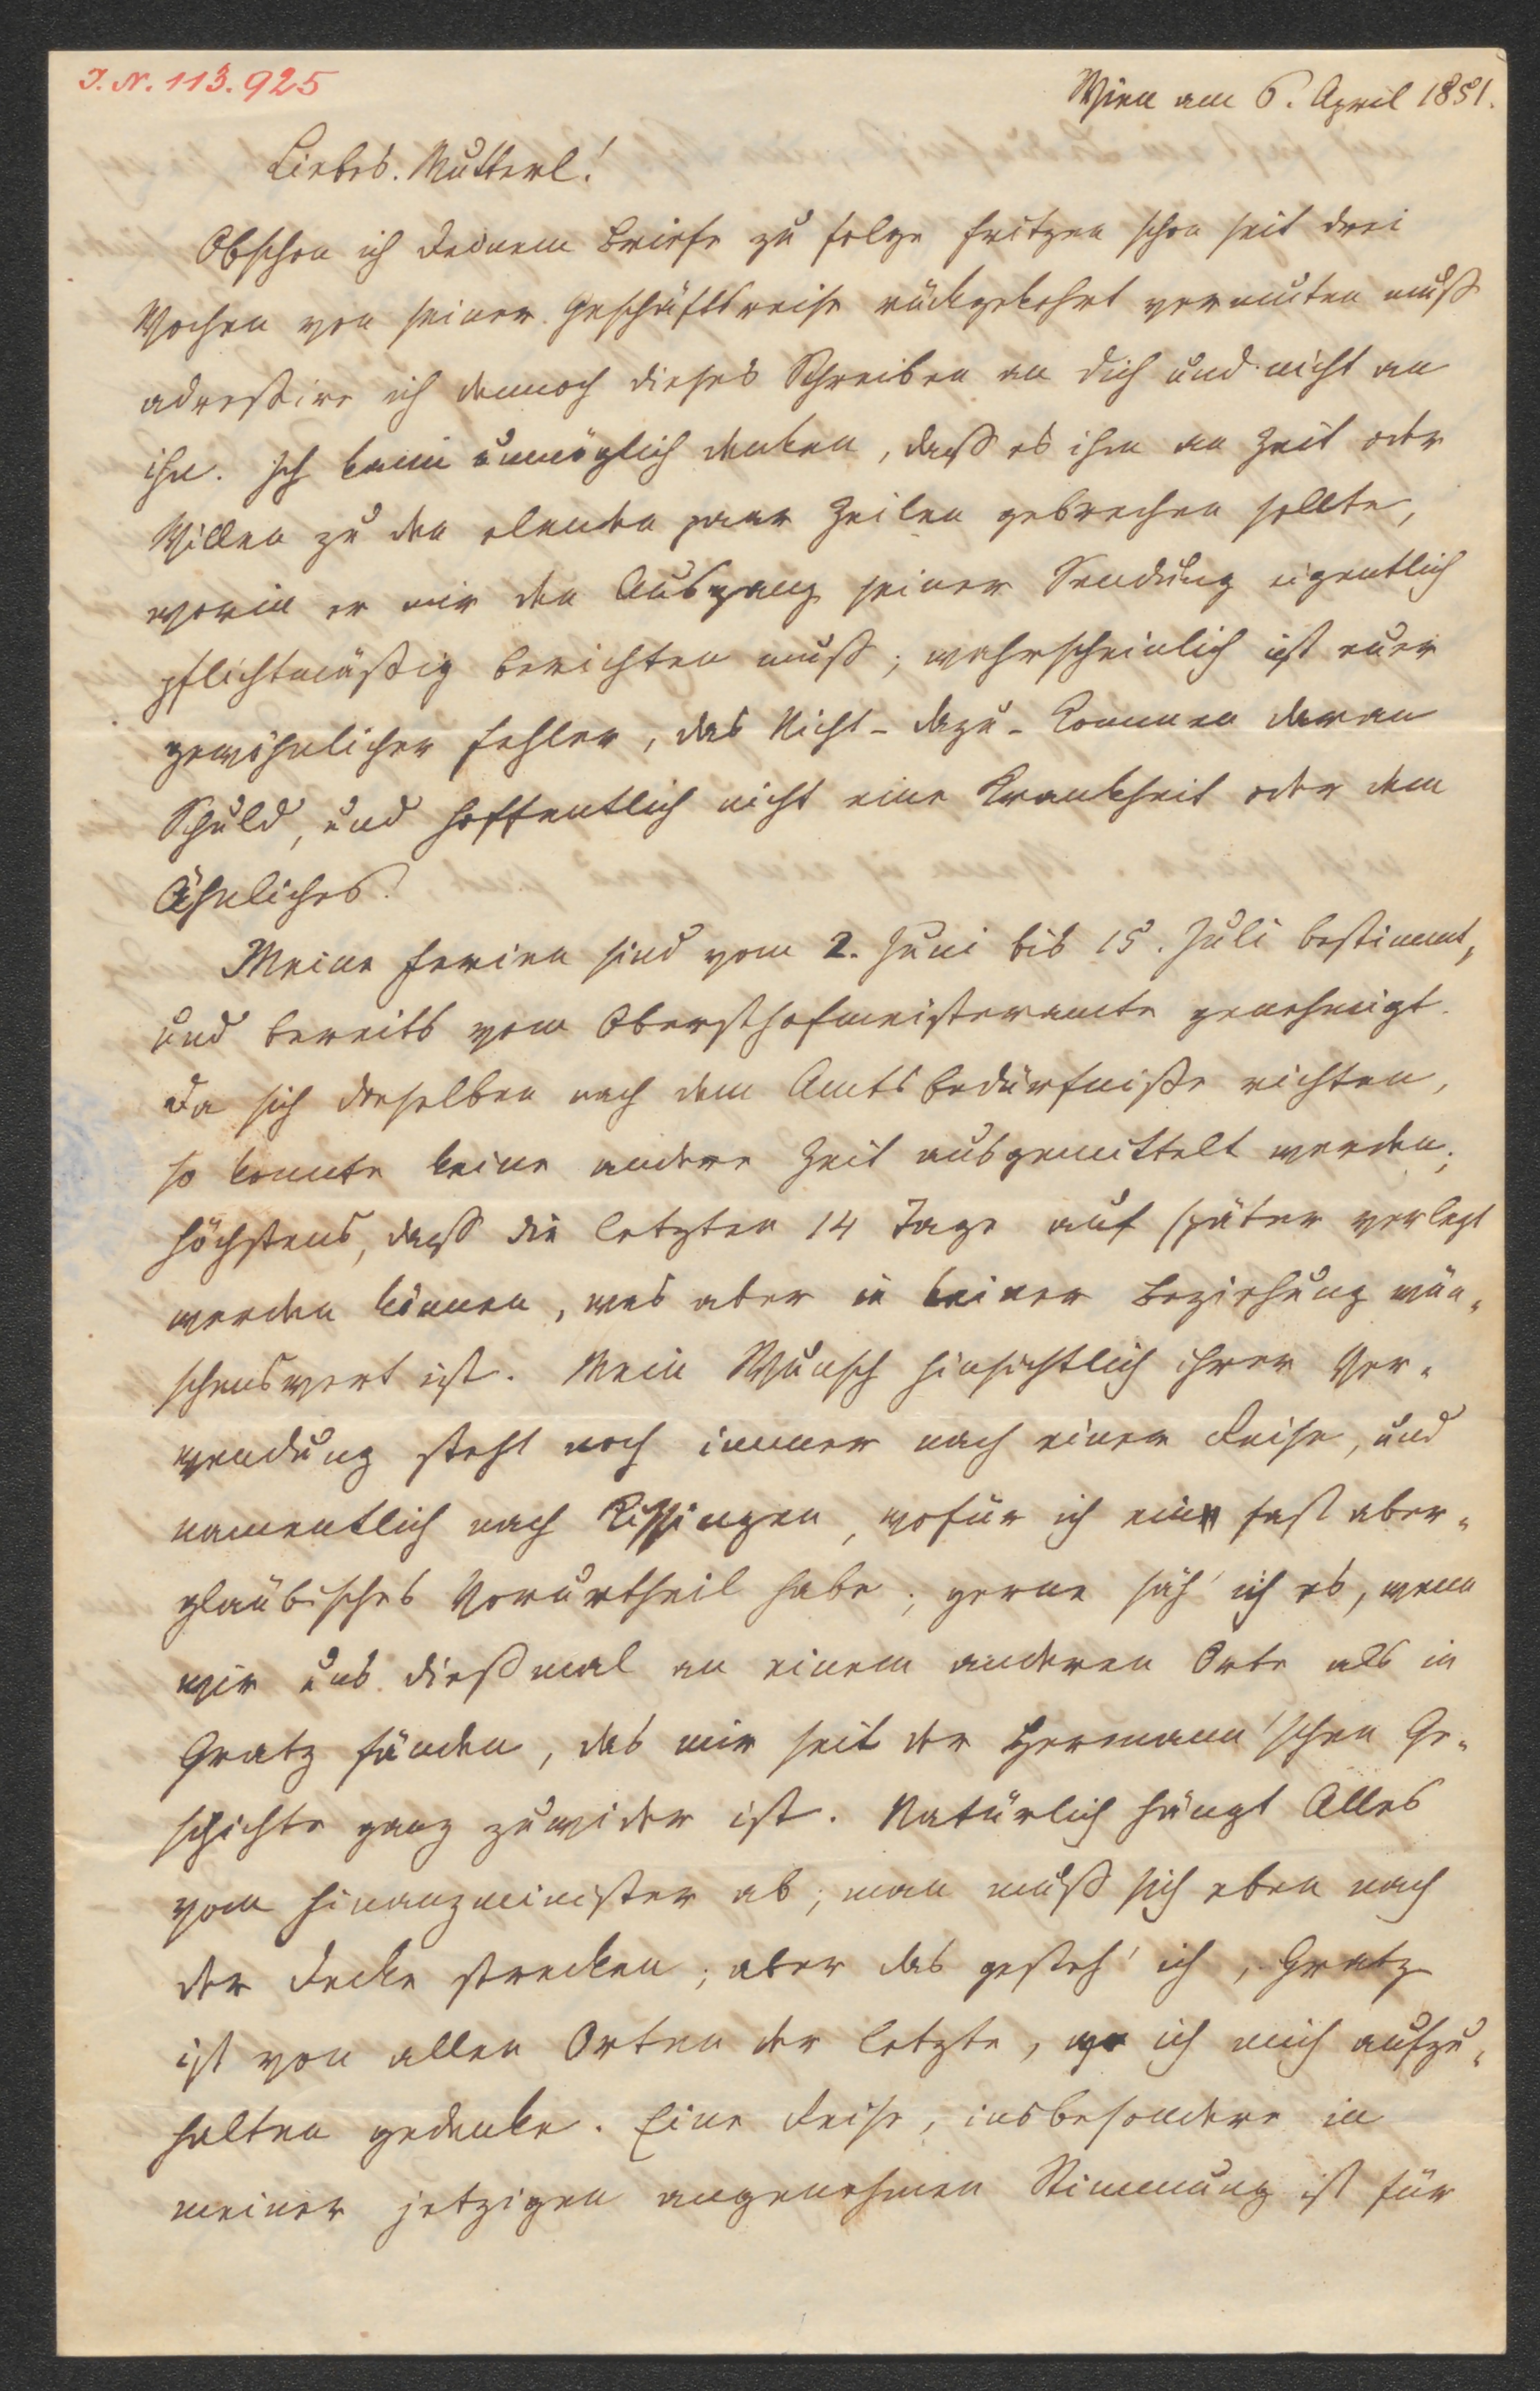 J. N. 113.925
Wien am 6. April 1851.
Liebes Mutterl!
Obschon ich Deinem Briefe zu folge Fritzen schon seit drei
Wochen von seiner Geschäftsreise rückgekehrt vermuten muß
adressire ich dennoch dieses Schreiben an dich und nicht an
ihn. Ich kann unmöglich denken, daß es ihm an Zeit oder
Willen zu den elenden paar Zeilen gebrechen sollte,
worin er mir den Ausgang seiner Sendung eigentlich
pflichtmäßig berichten muß; wahrscheinlich ist euer
gewöhnlicher Fehler, das Nicht-dazu-Kommen daran
Schuld, und hoffentlich nicht eine Krankheit oder dem
Ähnliches.
Meine Ferien sind vom 2. Juni bis 15. Juli bestimmt,
und bereits vom Obersthofmeisteramte genehmigt.
Da sich dieselben nach dem Amtsbedürfniße richten,
so konnte keine andere Zeit ausgemittelt werden;
höchstens, daß die letzten 14 Tage auf später verlegt
werden können, was aber in keiner Beziehung wün-
schenswert ist. Mein Wunsch hinsichtlich ihrer Ver-
wendung steht noch immer nach einer Reise, und
namentlich nach Kissingen, wofür ich ein fast aber-
gläubisches Vorurtheil habe; gerne säh' ich es, wenn
wir uns dießmal an einem anderen Orte als in
Gratz fänden, das mir seit der Hermann'schen Ge-
schichte ganz zuwider ist. Natürlich hängt Alles
vom Finanzminister ab; man muß sich eben nach
der Decke strecken; aber das gesteh' ich, Gratz
ist von allen Orten der letzte, wo ich mich aufzu-
halten gedenke. Eine Reise, insbesondere in
meiner jetzigen angenehmen Stimmung ist für